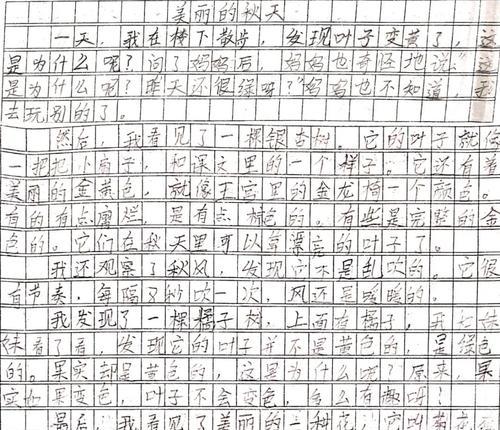 美丽的秋天
一天，我在楼下散步，发现叶子变黄了，这
是为什么呢？问了妈妈后，妈妈也奇怪地说："这
是为什么啊？昨天还很绿呀？"妈妈也不知道，我
去玩别的了。
然后，我看见了一棵银杏树。它的叶子就像
一把把小扇子，和课文里的一个样子。它还有着
美丽的金黄色，就像王宫里的金龙椅一个颜色。
有的有点腐烂，是有点棕色的。有些是完整的金
色的。它们在秋天里可以算漂亮的叶子了。
我还观察了秋风，发现它不是乱吹的。它很
有节奏，每隔 秒吹一次，风还是暖暖的。
我发现了一棵橘子树，上面有橘子，我
妹看了看，发现它的叶子并不是黄色的，是绿色
的。果实却是黄色的，这是为什么呢？原来，果
实如果变色，叶子不会变色，多么有趣呀！
最后，我看见了美丽的一种花，它叫